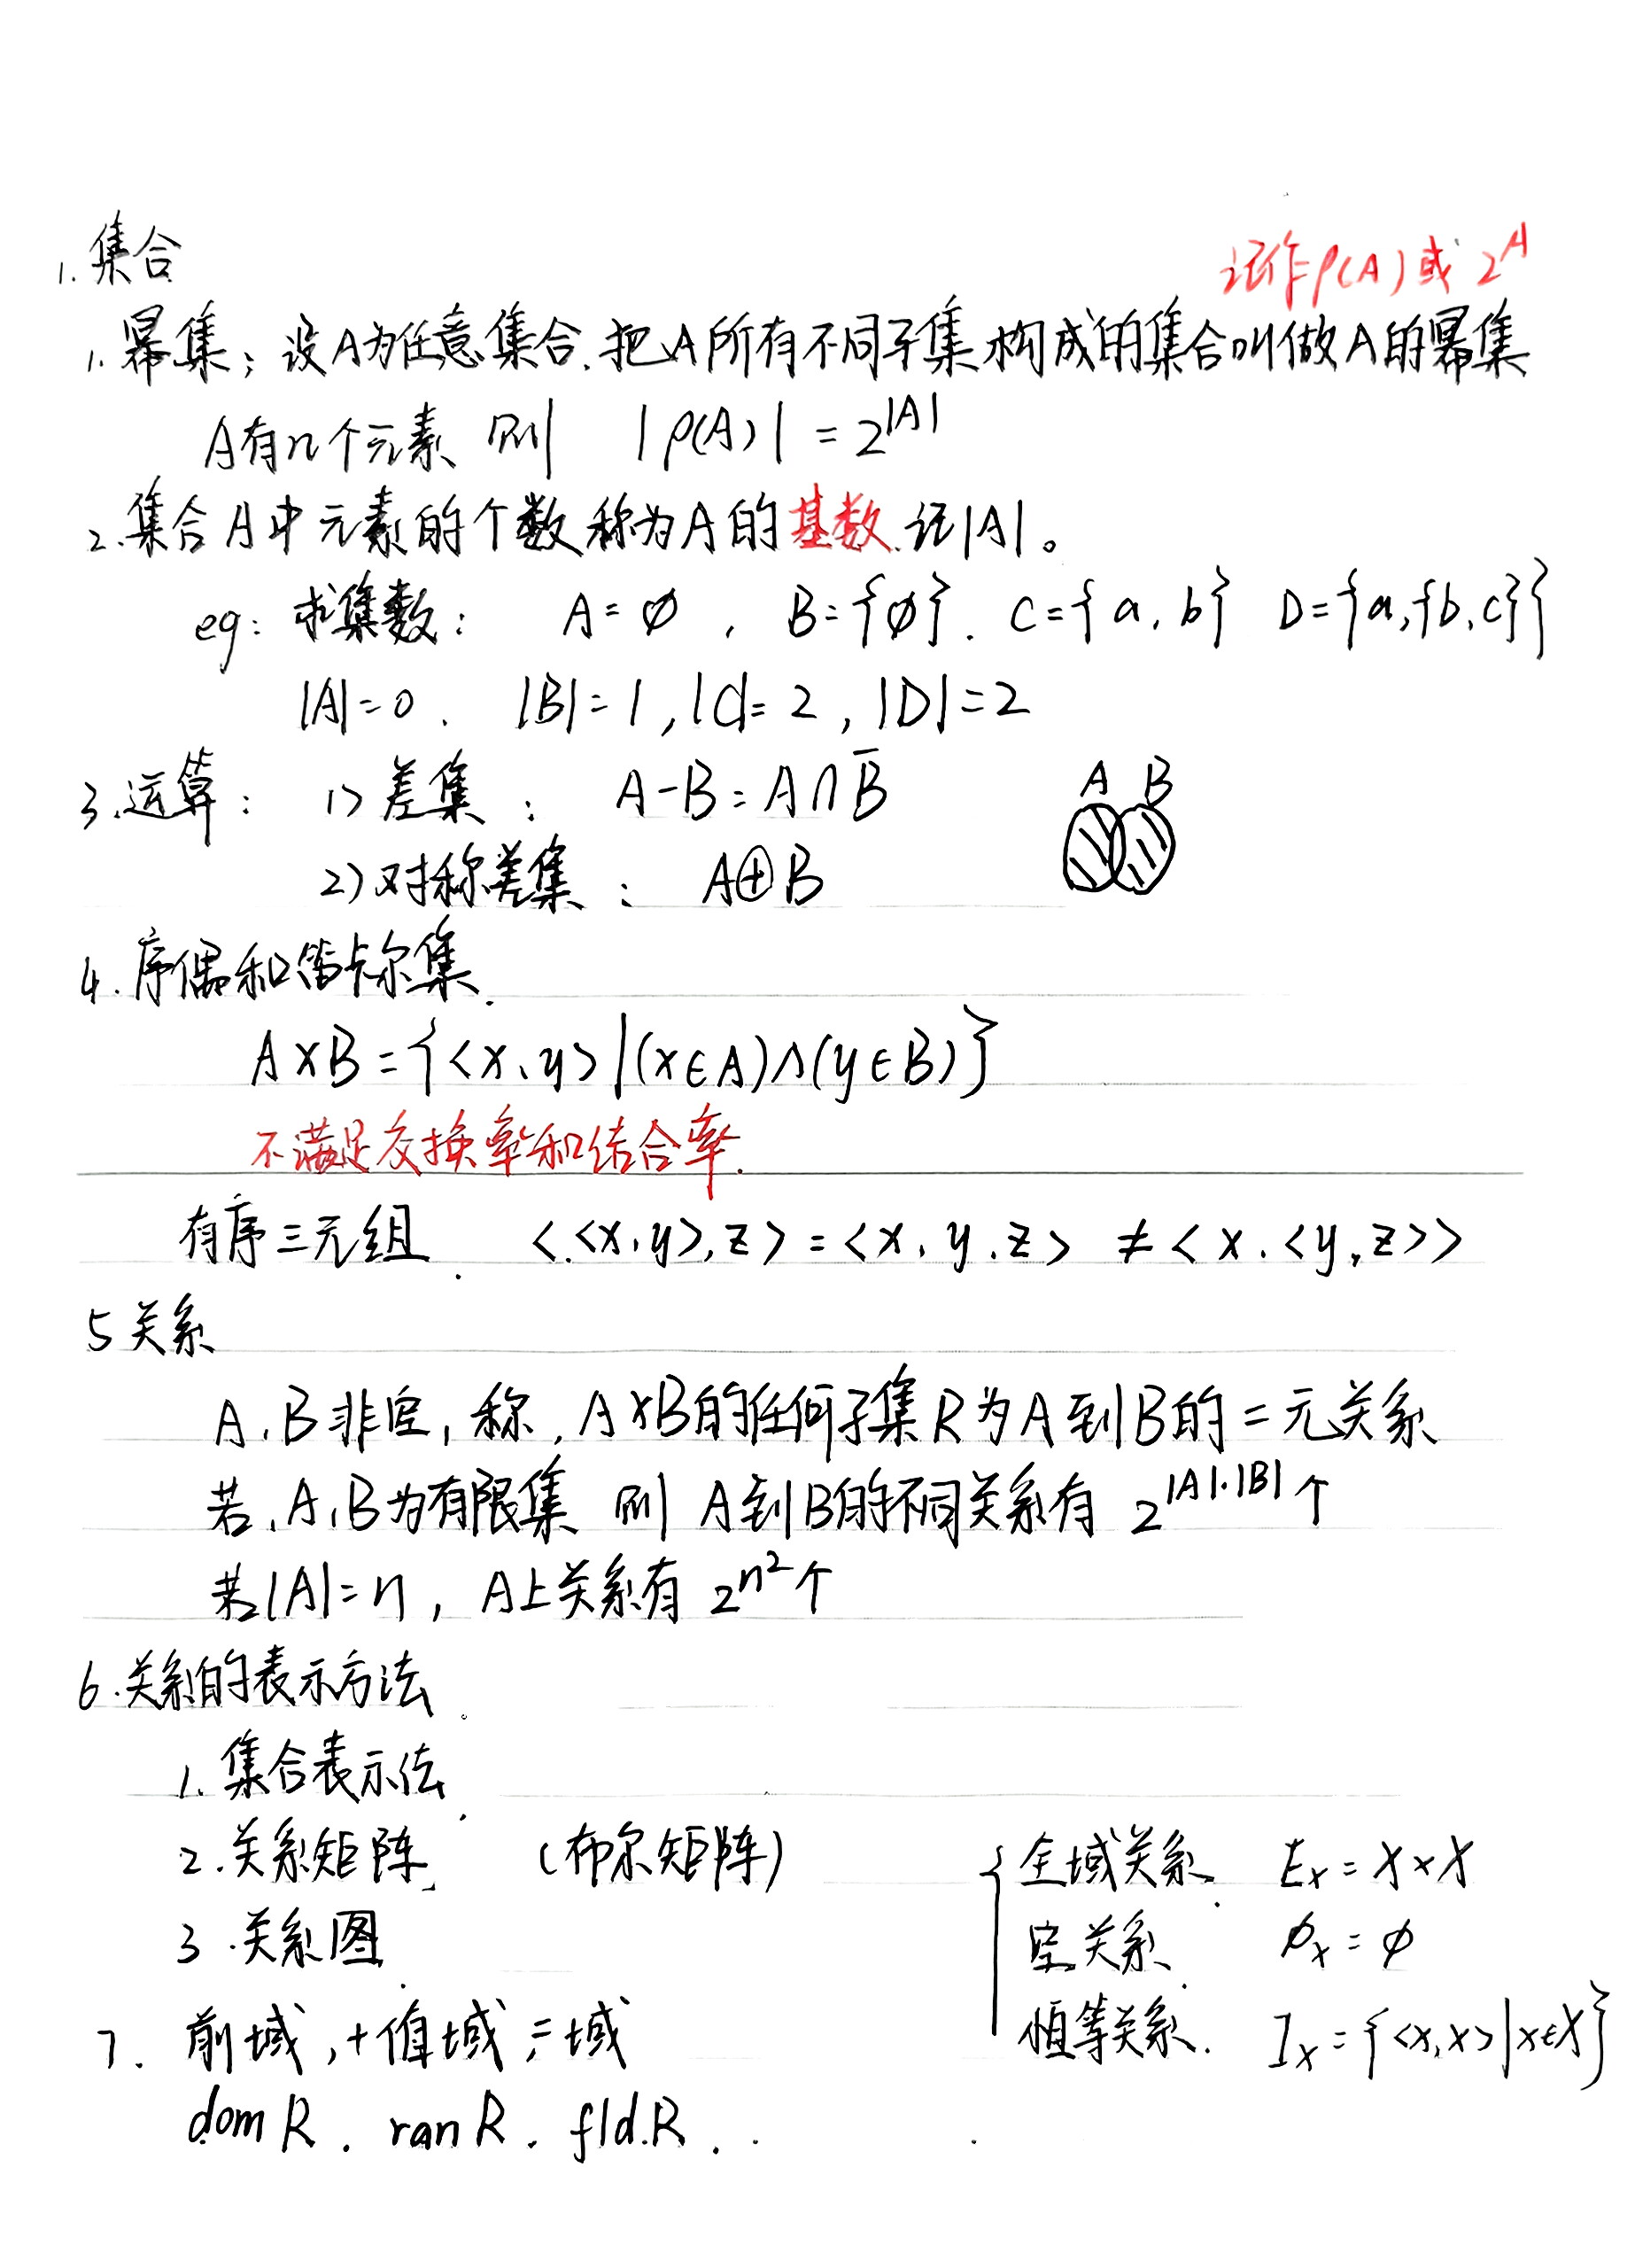 1. 集合
记作ρ(A)或 2^A
1. 幂集：设A为任意集合.把A所有不同子集构成的集合叫做A的幂集
A有n个元素 则 |ρ(A)| = 2^|A|
2. 集合A中元素的个数称为A的基数.记|A|。
eg: 求集数： A=∅ , B={∅}. C={a,b} D={a,{b,c}}
|A|=0. |B|=1, |C|=2, |D|=2
3. 运算： 1> 差集： A-B=A∩B̄
A B
2) 对称差集： A⊕B
4. 序偶和笛卡尔集.
A×B={<x,y>|(x∈A)∧(y∈B)}
不满足交换率和结合率.
有序三元组. <<x,y>,z>=<x,y,z> ≠ <x,<y,z>>
5 关系
A,B非空,称,A×B的任何子集R为A到B的二元关系
若,A,B为有限集 则 A到B的不同关系有 2^|A|·|B| 个
若|A|=n, A上关系有 2^n² 个
6.关系的表示方法.
1. 集合表示法.
2. 关系矩阵. (布尔矩阵)
3. 关系图.
{ 全域关系. E_x = X×X
空关系. ∅_x = ∅
恒等关系. I_x = {<x,x>|x∈X}
7. 前域,+值域,=域
dom R. ran R. fld.R.